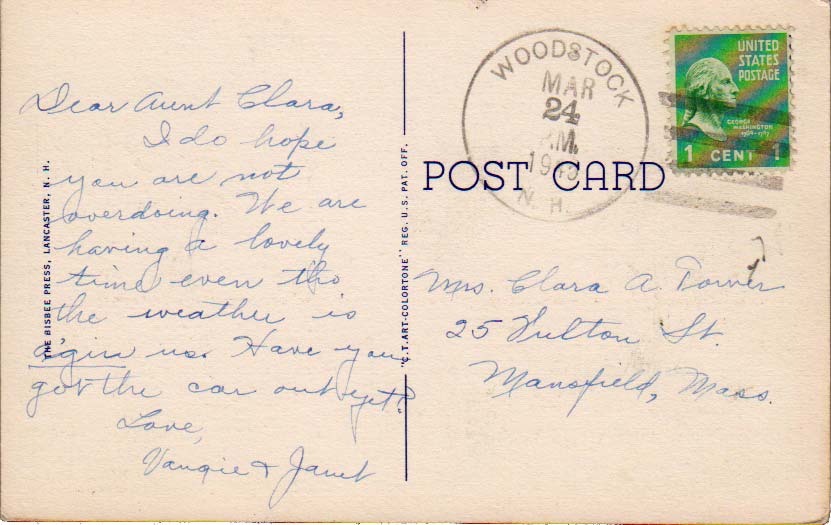 Dear Aunt Clara,
I do hope
you are not
overdoing. We are
having a lovely
time even tho
the weather is
agin us. Have you
got the car out yet?
Love,
Vangie & Janet
THE BISBEE PRESS, LANCASTER, N. H.
"C.T. ART-COLORTONE" REG. U.S. PAT. OFF.
POST CARD
WOODSTOCK
MAR
24
M.
N. H.
UNITED
STATES
POSTAGE
GEORGE
WASHINGTON
1789-1797
1 CENT 1
Mrs. Clara A. Tower
25 Fulton St.
Mansfield, Mass.